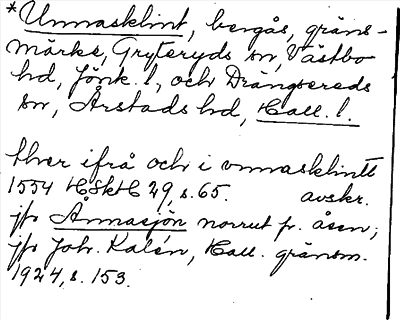 *Unnasklint, bergås, gräns-
märke, Gryteryds sn, Västbo
hd, Jönk. l., och Drängsereds
sn, Årstads hd, Hall. l.
ther ifrå och i vnnasklintt
1554 HSkH 29, s. 65. avskr.
jfr Ånnasjön norrut fr. åsen;
jfr Joh. Kalén, Hall. gränsm.
1924, s. 153.